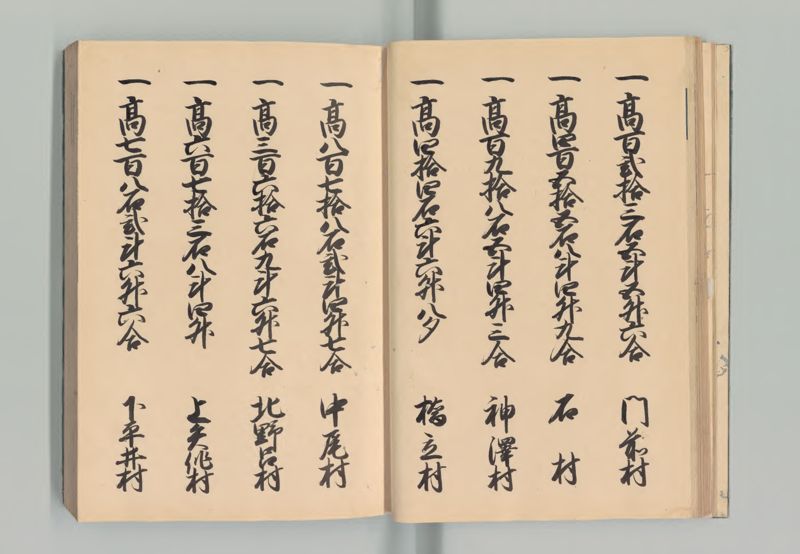 一 高百弐拾三石五斗五升六合 門前村
一 高四百五拾五石八斗四升九合 石村
一 高百九拾八石五斗四升三合 神澤村
一 高四拾四石六斗六升八夕 橋立村
一 高八百七拾八石弐斗四升七合 中尾村
一 高三百六拾六石九斗六升七合 北野呂村
一 高六百七拾三石八斗四升 上矢作村
一 高七百八石弐斗六升六合 下平井村